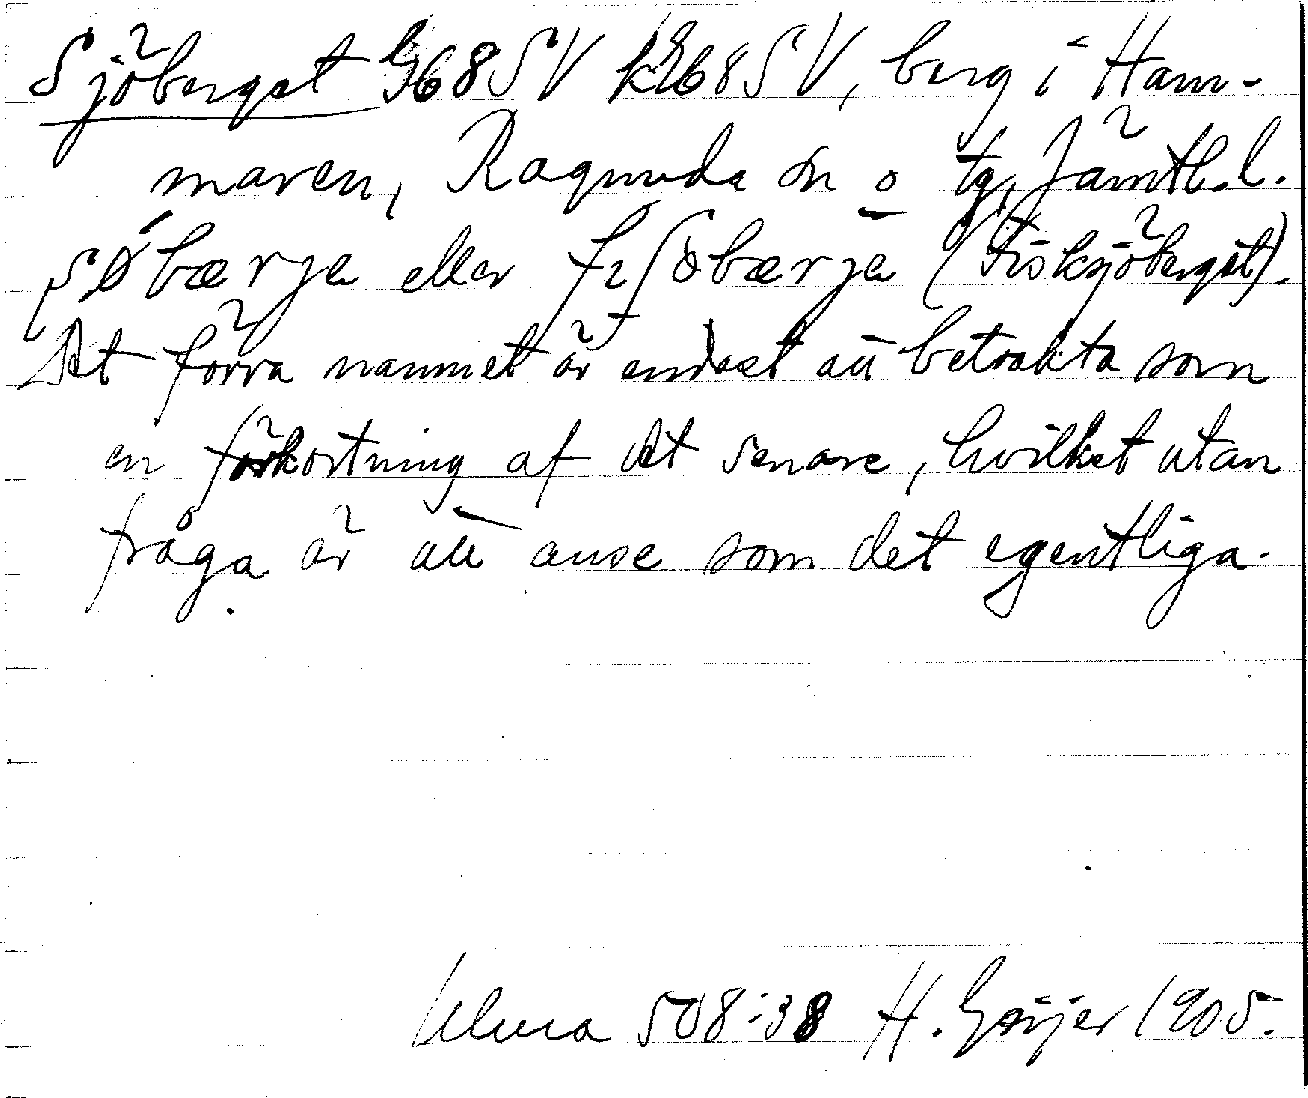 Sjöberget G68SV k468SV, berg i Ham-
maren, Ragunda sn o tg, Jämtl. l.
ʃø´bærje eller fɪʃøbærje (Fisksjöberget).
Det förra namnet är endast att betrakta som
en förkortning af det senare, hvilket utan
fråga är att anse som det egentliga.
Ulma 508:38 H. Geijer 1905.